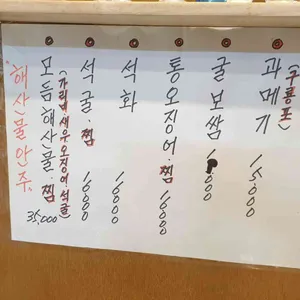 해산물안주.
모듬해산물.찜 35,000
(가리비새우오징어.석굴)
석굴.찜 16000
석화 16000
통오징어.찜 16000
굴보쌈
과메기 15.000
(구룡포)